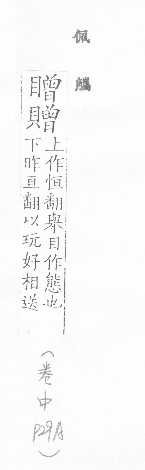 佩觿
䁬贈上作恒翻舉目作態也
下昨亘翻以玩好相送
(卷中 P29A)